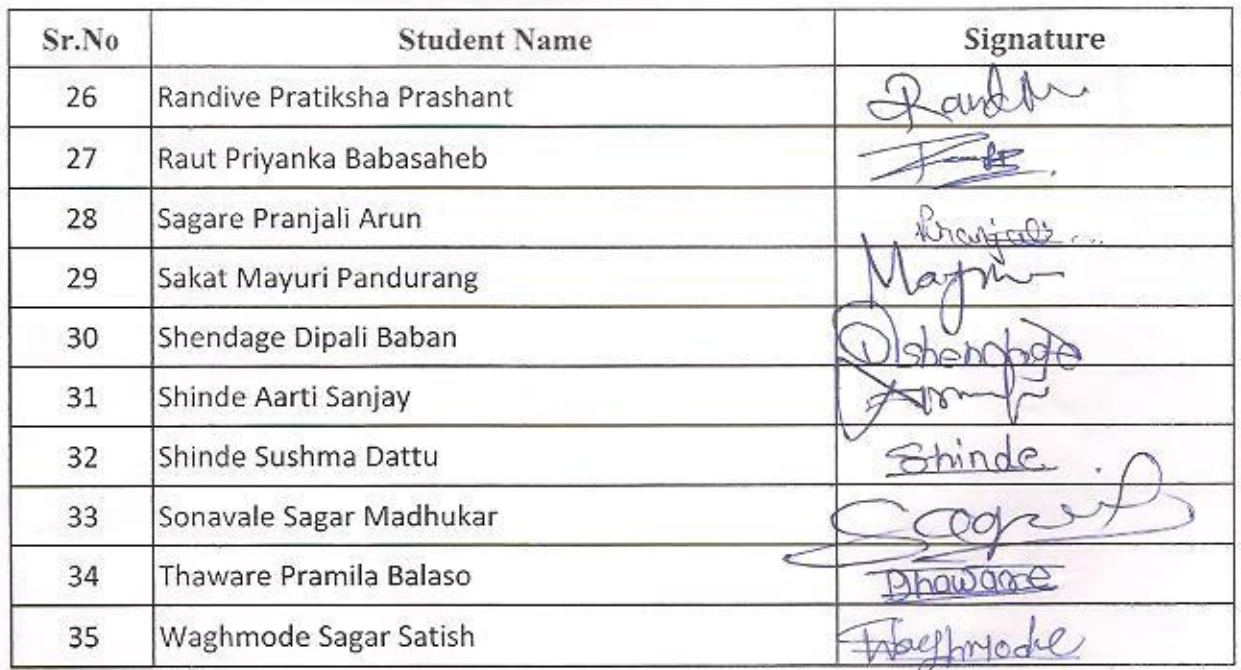 Sr.No Student Name Signature
26 Randive Pratiksha Prashant
27 Raut Priyanka Babasaheb
28 Sagare Pranjali Arun Pranjali...
29 Sakat Mayuri Pandurang
30 Shendage Dipali Baban Dshendage
31 Shinde Aarti Sanjay
32 Shinde Sushma Dattu Shinde
33 Sonavale Sagar Madhukar
34 Thaware Pramila Balaso
35 Waghmode Sagar Satish Waghmode